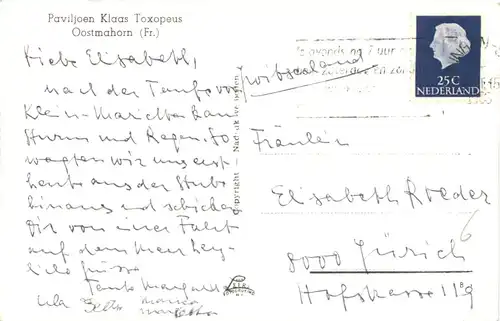 Paviljoen Klaas Toxopeus
Oostmahorn (Fr.)
Liebe Elisabeth,
nach der Taufe von
Klein-Marietta kam
Sturm und Regen. So
wagten wir uns erst
heute aus der Stube
hinaus und schicken
Dir von einer Fahrt
auf dem Meer herz-
liche Grüsse
Tante Margareth
Ula Beth Marica
Copyright - Nadruk verboden
's avonds na 7 uur
zaterdag en zon
25C
NEDERLAND
Switzerland
Fräulein
Elisabeth Roeder
8000 Zürich 6
Hofstrasse 119